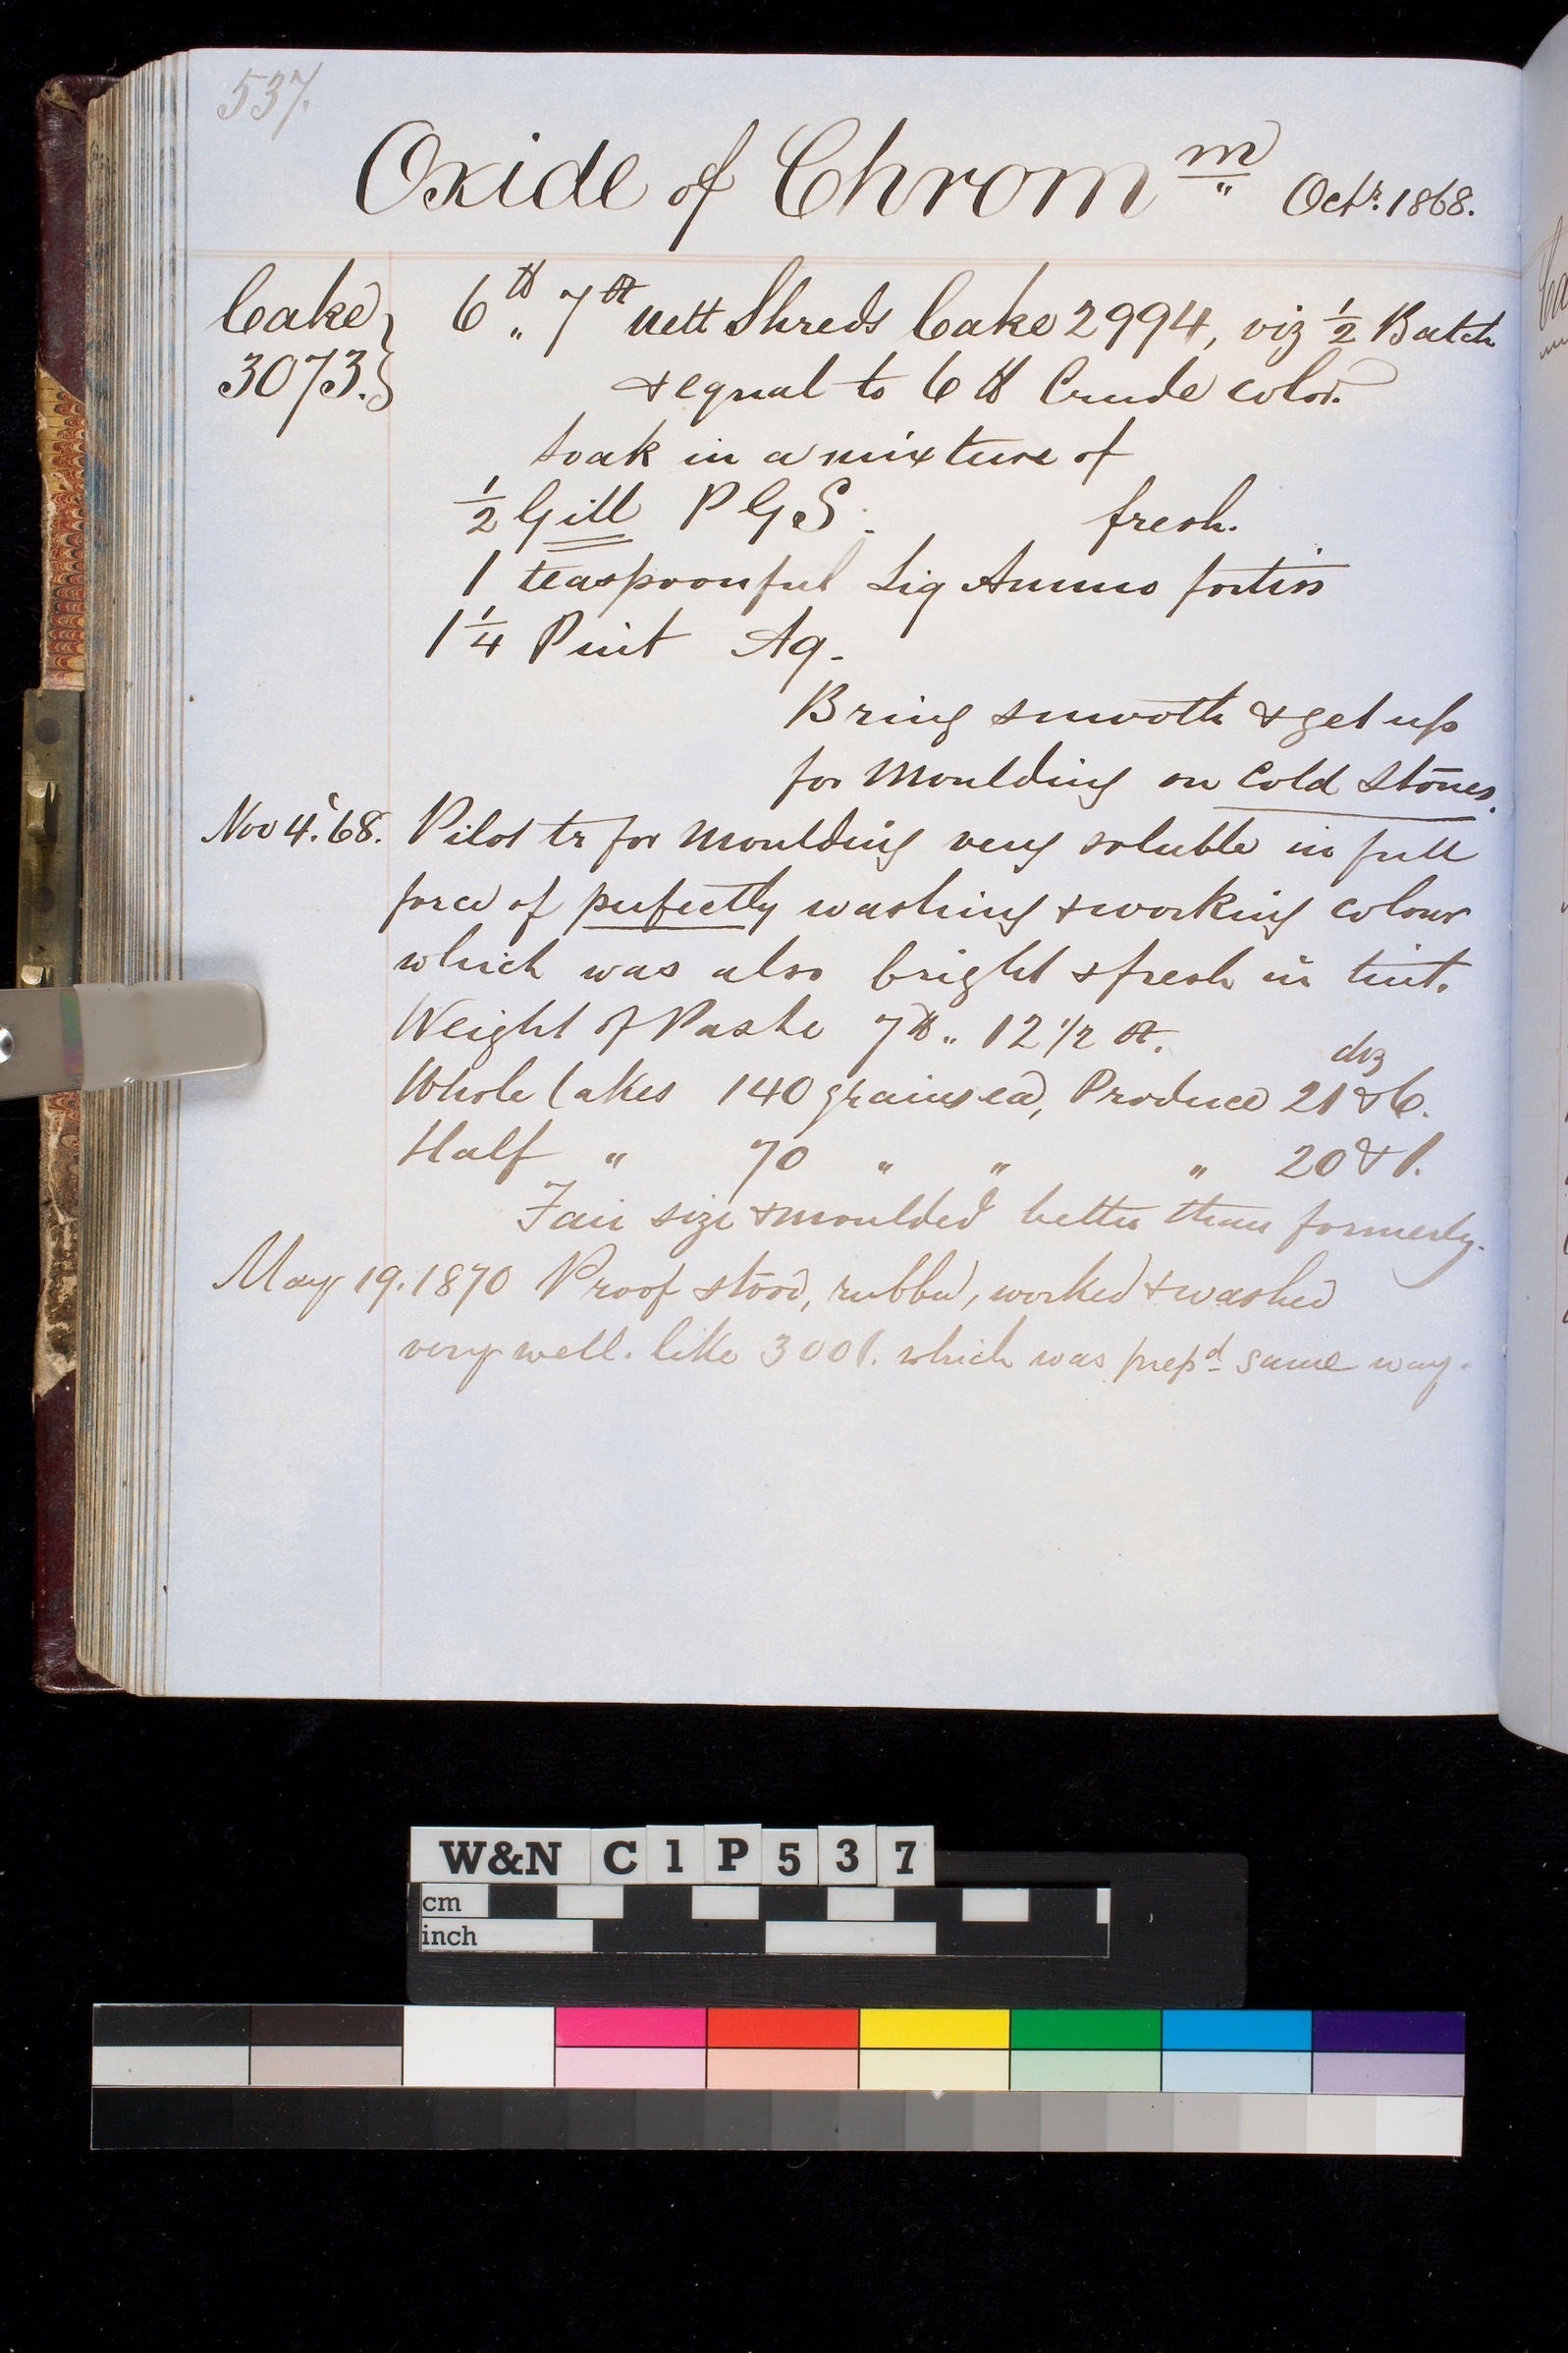 537.
Oxide of Chrom m Octr. 1868.
Cake 6 lb 7 oz nett Shreds Cake 2994, viz ½ Batch
3073. & equal to 6 lb Crude color.
Soak in a mixture of
½ Gill P G S. fresh.
1 teaspoonful Liq Ammo fortiss
1¼ Pint Aq.
Bring smooth & get up
for Moulding on Cold Stones.
Nov 4. 68. Pilot tr for Moulding very soluble in full
force of perfectly washing & working colour
which was also bright & fresh in tint.
Weight of Paste 7 lb „ 12 1/2 oz.
doz
Whole Cakes 140 grains ea, Produce 21 & 6.
Half " 70 " " " 20 & 1.
Fair size & moulded better than formerly.
May 19. 1870 Proof stood, rubbed, worked & washed
very well. like 3001. which was prepd same way.
W&N C1P537
cm
inch